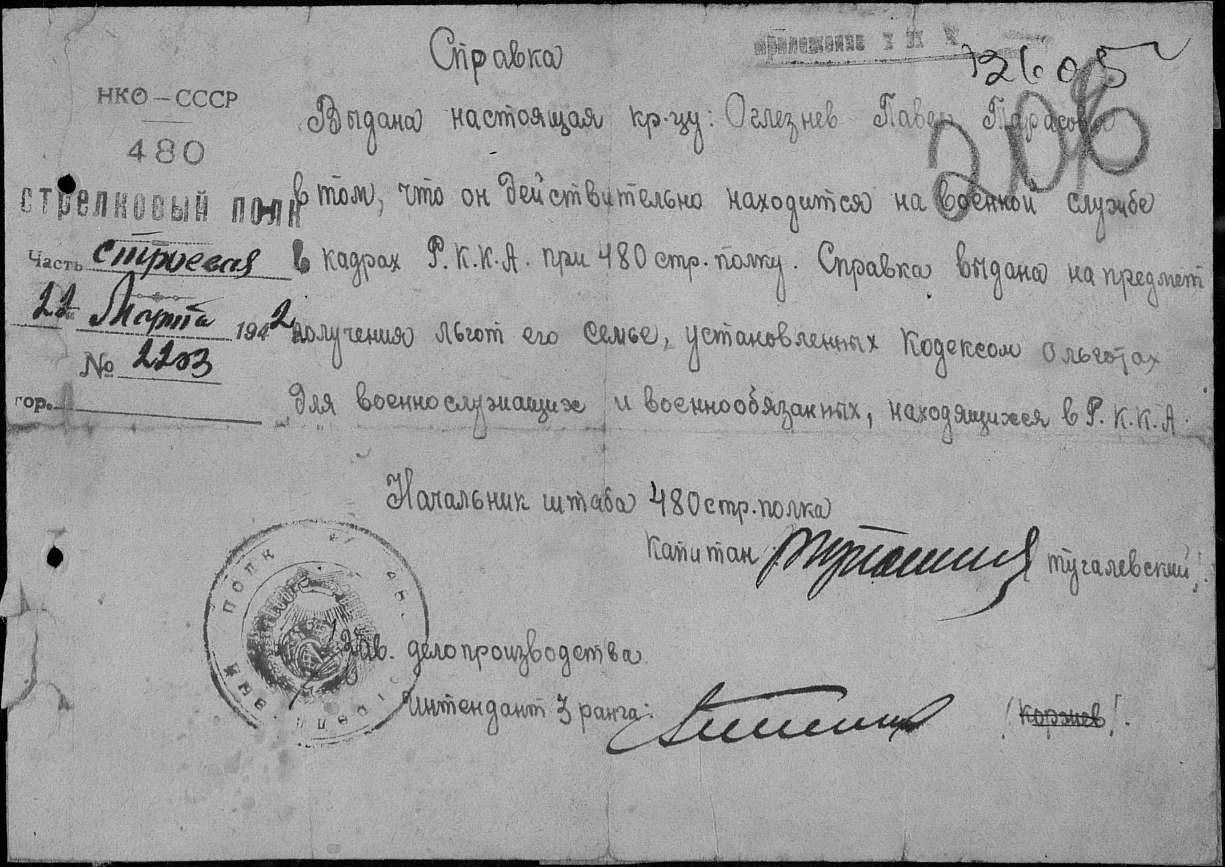 Справка
32605
206
НКО – СССР
480
стрелковый полк
Часть строевая
22 Марта 1942
№ 2203
гор.
Выдана настоящая кр-цу: Оглезнев Павел
в том, что он действительно находится на военной службе
в кадрах Р.К.К.А. при 480 стр. полку. Справка выдана на предмет
получения льгот его семье, установленных Кодексом о льготах
для военнослужащих и военнообязанных, находящихся в Р.К.К.А.
Начальник штаба 480 стр. полка
Капитан (Тугалевский).
Зав. делопроизводства
Интендант 3 ранга: (Корзнев).
ПОЛК